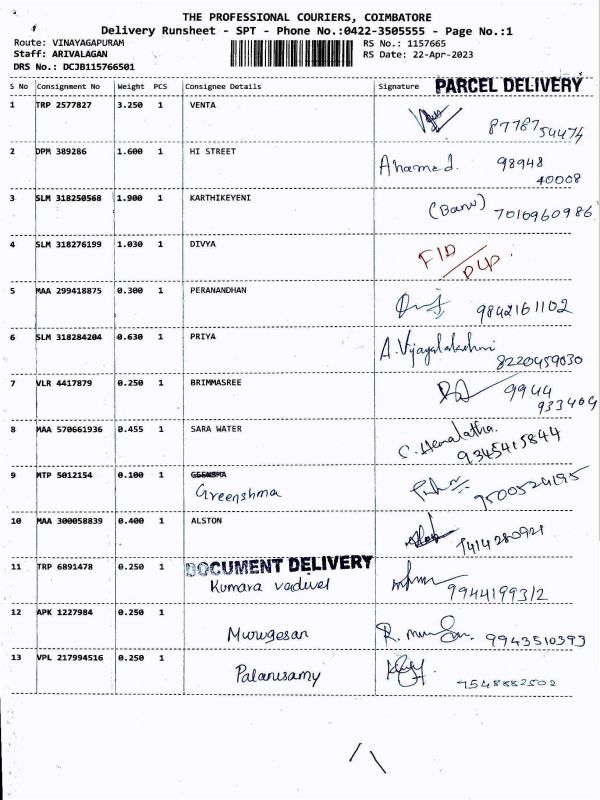 THE PROFESSIONAL COURIERS, COIMBATORE
Delivery Runsheet - SPT - Phone No.:0422-3505555 - Page No.:1
Route: VINAYAGAPURAM RS No.: 1157665
Staff: ARIVALAGAN RS Date: 22-Apr-2023
DRS No.: DCJB115766501
PARCEL DELIVERY
S No Consignment No Weight PCS Consignee Details Signature
1 TRP 2577827 3.250 1 VENTA
8778754474
2 DPM 389286 1.600 1 HI STREET
Ahamed. 98948
40008
3 SLM 318250568 1.900 1 KARTHIKEYENI
(Banu) 7010960986
4 SLM 318276199 1.030 1 DIVYA
5 MAA 299418875 0.300 1 PERANANDHAN
9842161102
6 SLM 318284204 0.630 1 PRIYA
A.Vijayalakshmi
8220459030
7 VLR 4417879 0.250 1 BRIMMASREE
9944
933404
8 MAA 570661936 0.455 1 SARA WATER
C. Hemalatha.
9345415844
9 MTP 5012154 0.100 1 GEENSMA
Greenshma
9500524195
10 MAA 300058839 0.400 1 ALSTON
7414280921
11 TRP 6891478 0.250 1 DOCUMENT DELIVERY
Kumara vadivel
9944199312
12 APK 1227984 0.250 1
Murugesan
9943510393
13 VPL 217994516 0.250 1
Palanisamy
9548882502